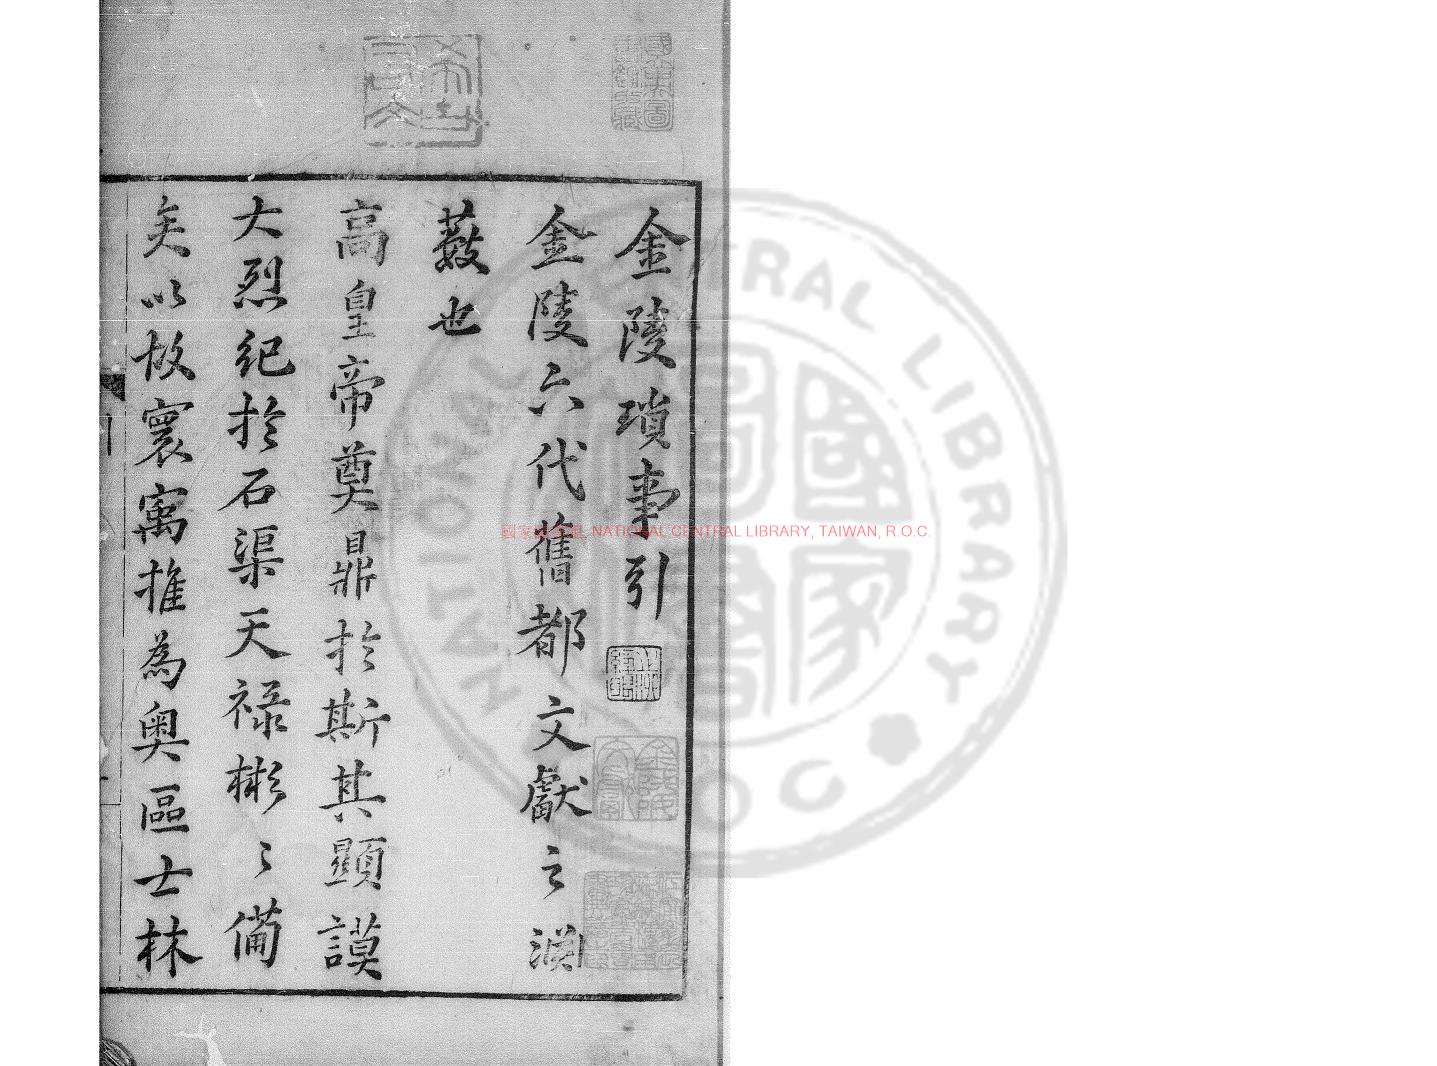 金陵瑣事引
金陵六代舊都文獻之淵
藪也
高皇帝奠鼎於斯其顯謨
大烈紀於石渠天祿彬〻備
矣以故寰㝢推為奧區士林
國家圖書館, NATIONAL CENTRAL LIBRARY, TAIWAN, R.O.C.
NATIONAL CENTRAL LIBRARY
R.O.C.